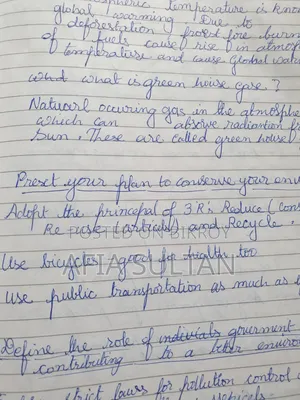 spheric temperature is know
global warming. Due to
deforestation, forest fire, burn
of fuels cause rise in atmosp
temperature and cause Global war
what is green house gase?
Natuarl occuring gas in the atmosphe
which can absorve radiantion fr
sun. These are called green house
Preset your pplan to conserve your env
Adopt the principal of 3R's Reduce (Cons
Re use (articals) and Recycle.
POSTED ON BIKROY
AFIA SULTAN
Use bicycles good for highths too
Use public transportation as much as
Define the role of indiviuals gourment
contributing to a better enviro
strict laws for pollution control